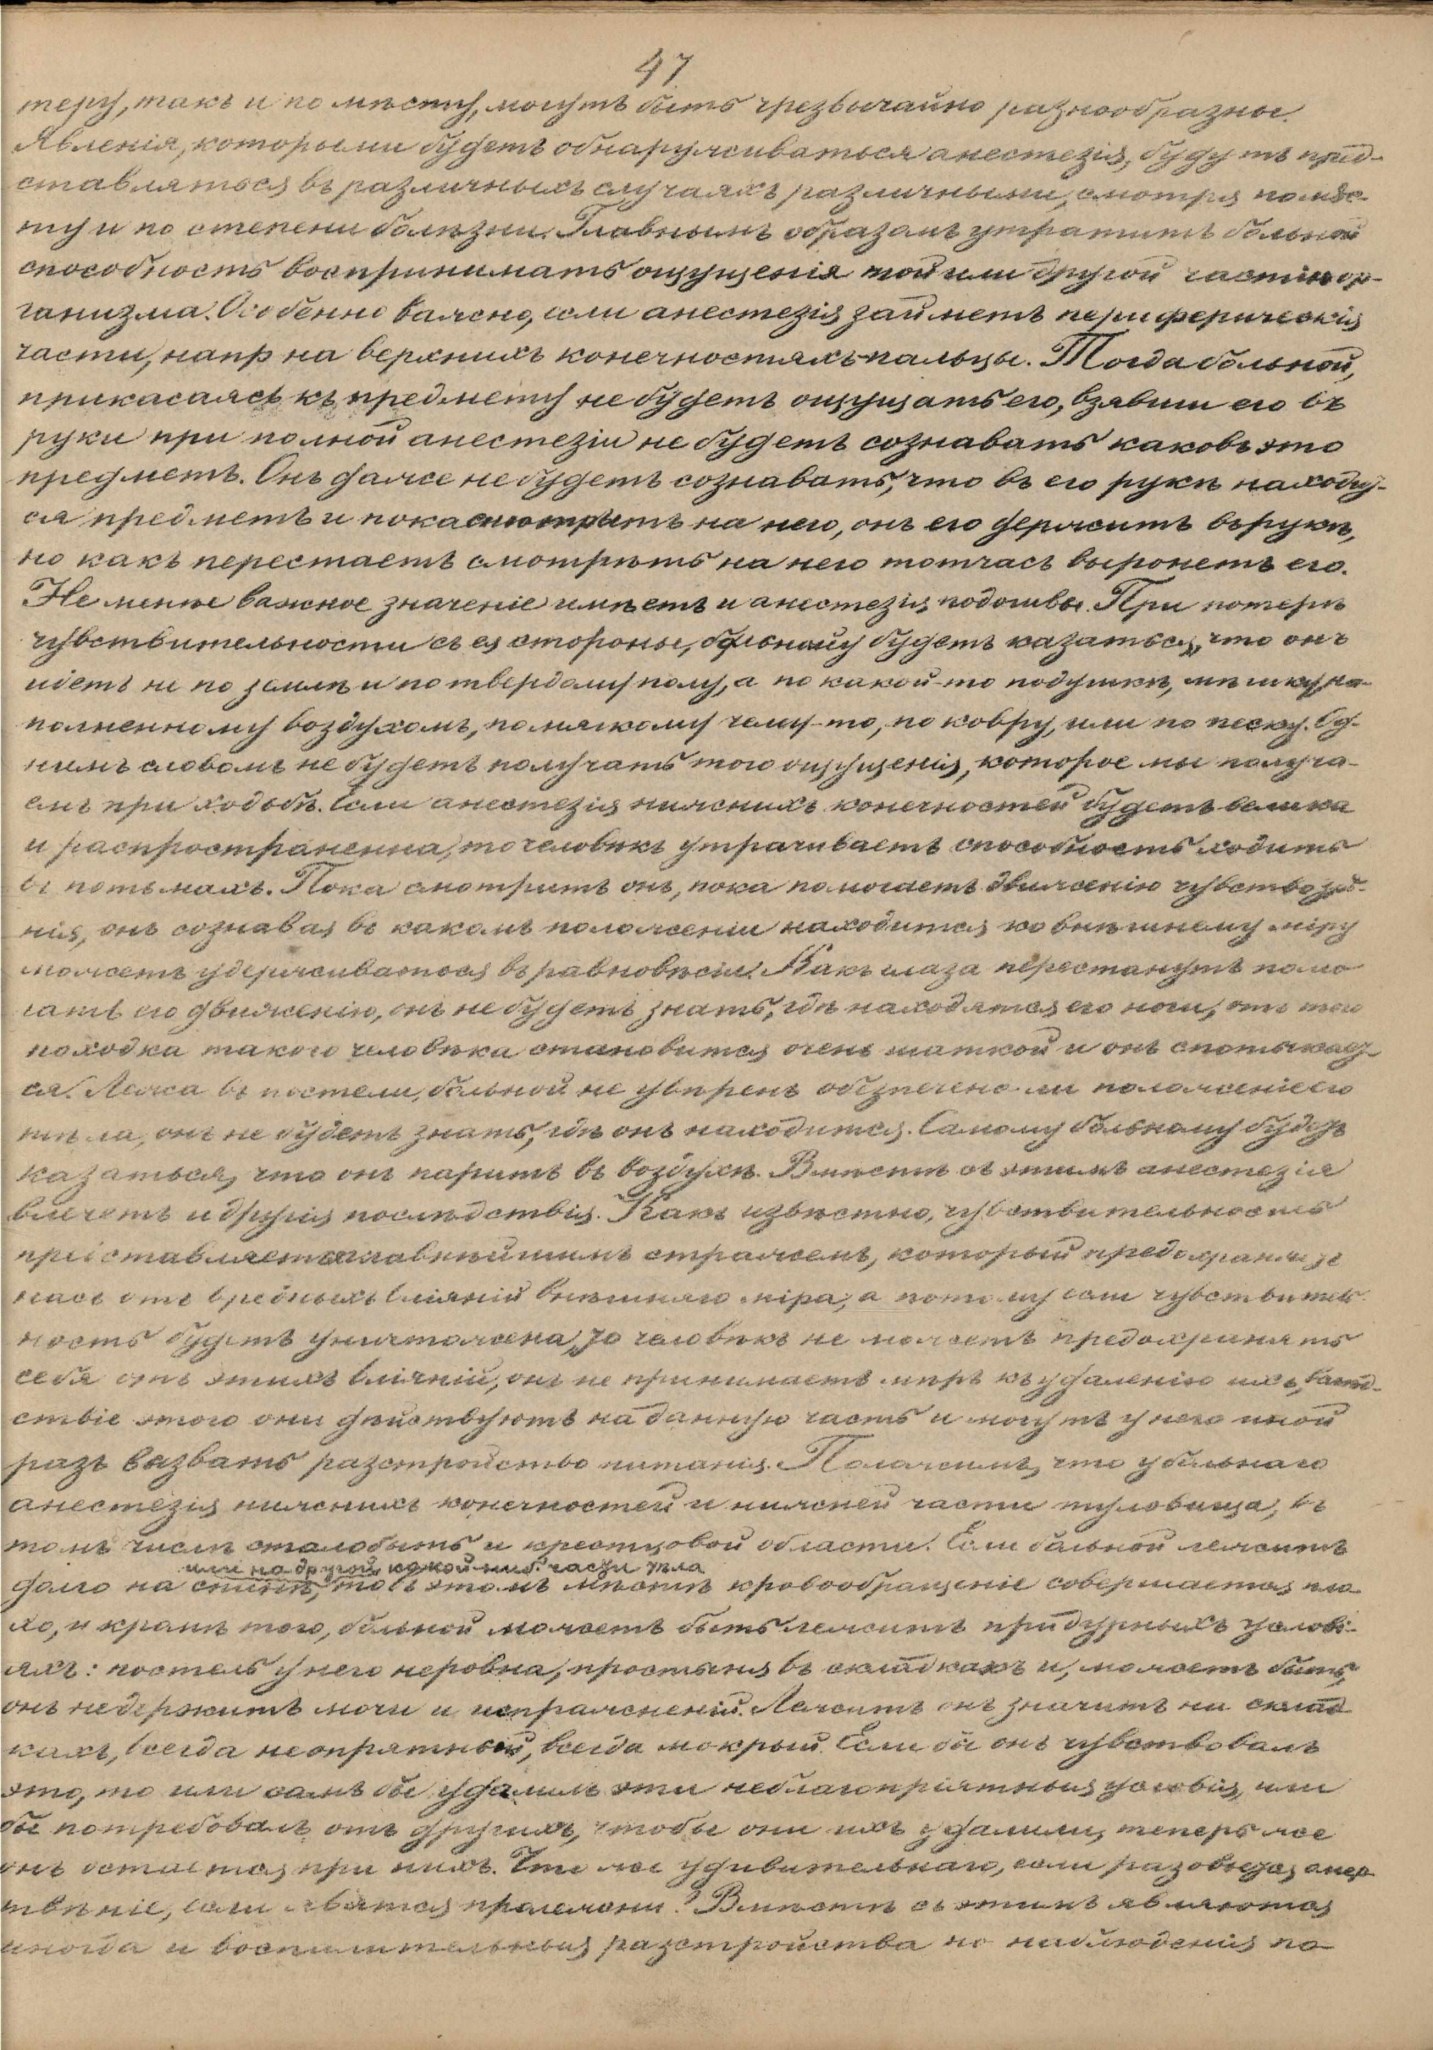 47
теру, такъ и по мѣсту, могутъ быть чрезвычайно разнообразные.
Явленія, которыми будетъ обнаруживаться анестезія, будутъ пред-
ставляться въ различныхъ случаяхъ различными, смотря по мѣс-
ту и по степени болѣзни. Главнымъ образомъ утратитъ больной
способность воспринимать ощущенія той или другой частію ор-
ганизма. Особенно важно, если анестезія займетъ периферическія
части, напр на верхнихъ конечностяхъ-пальцы. Тогда больной,
прикасаясь къ предмету не будетъ ощущать его, взявши его въ
руки при полной анестезіи не будетъ сознавать каковъ это
предметъ. Онъ даже не будетъ сознавать, что въ его рукѣ находит-
ся предметъ и пока смотритъ на него, онъ его держитъ въ рукѣ,
но какъ перестаетъ смотрѣть на него тотчасъ выронетъ его.
Не менѣе важное значеніе имѣетъ и анестезія подошвы. При потерѣ
чувствительности съ ея стороны, больному будетъ казаться, что онъ
идетъ не по землѣ и по твердому полу, а по какой-то подушкѣ, мѣшку, на-
полненному воздухомъ, по мягкому чему-то, по ковру, или по песку. Од-
нимъ словомъ не будетъ получать того ощущенія, которое мы получа-
емъ при ходьбѣ. Если анестезія нижнихъ конечностей будетъ велика
и распространенна, то человѣкъ утрачиваетъ способность ходить
въ потьмахъ. Пока смотритъ онъ, пока помогаетъ движенію чувство зрѣ-
нія, онъ сознавая въ какомъ положеніи находится ко внѣшнему міру
можетъ удерживаться въ равновѣсіи. Какъ глаза перестанутъ помо
гать его движенію, онъ не будетъ знать, гдѣ находятся его ноги, отъ того
походка такого человѣка становится очень шаткой и онъ спотыкает-
ся. Лежа въ постели, больной не увѣренъ обезпечено-ли положеніе его
тѣла, онъ не будетъ знать, гдѣ онъ находится. Самому больному будетъ
казаться, что онъ паритъ въ воздухѣ. Вмѣстѣ съ этимъ анестезія
влечетъ и другія послѣдствія. Какъ извѣстно, чувствительность
представляется главнѣйшимъ стражемъ, который предохраняетъ
насъ отъ вредныхъ вліяній внѣшняго міра, а потому если чувствитель
ность будетъ уничтожена, то человѣкъ не можетъ предохранять
себя отъ этихъ вліяній, онъ не принимаетъ мѣръ къ удаленію ихъ, вслѣд-
ствіе этого они дѣйствуютъ на данную часть и могутъ у него иной
разъ вызвать разстройство питанія. Положимъ, что у больнаго
анестезія нижнихъ конечностей и нижней части туловища, въ
томъ числѣ сталобыть и крестцовой области. Если больной лежитъ
или на другой какой ниб. части тѣла
долго на спинѣ, то въ этомъ мѣстѣ кровообращеніе совершается пло
хо, и кромѣ того, больной можетъ быть лежитъ при дурныхъ услові-
яхъ: постель у него неровна, простыня въ складкахъ и, можетъ быть,
онъ не держитъ мочи и испражненій. Лежитъ онъ значитъ на склад
кахъ, всегда неопрятный, всегда мокрый. Если бы онъ чувствовалъ
это, то или самъ бы удалилъ эти неблагопріятныя условія, или
бы потребовалъ отъ другихъ, чтобы они ихъ удалили, теперь же
онъ остается при нихъ. Что же удивительнаго, если разовьется омер
твѣніе, если явятся пролежни? Вмѣстѣ съ этимъ являются
иногда и воспалительныя разстройства но наблюденія по-